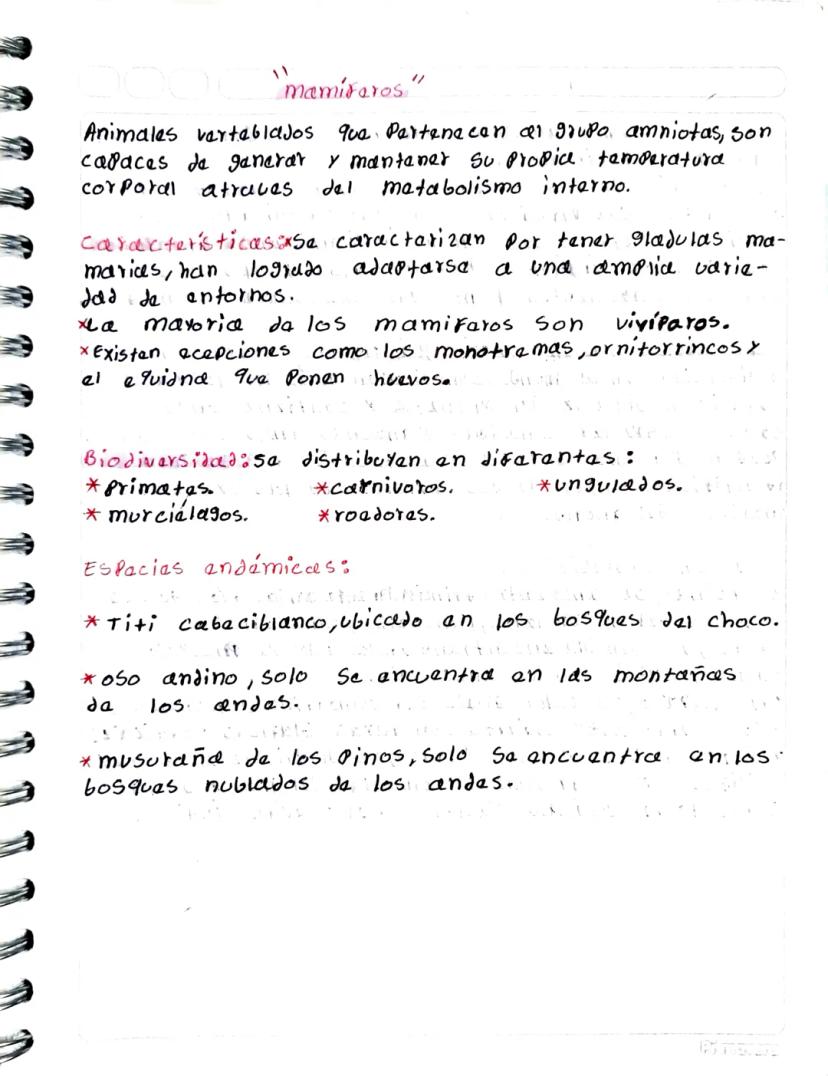 "mamíferos"
Animales vertebrados que Pertenecen al grupo amniotas, son
capaces de generar y mantener su propia temperatura
corporal atraves del metabolismo interno.
Características:*Se caracterizan por tener gladulas ma-
marias, han logrado adaptarse a una amplia varie-
dad de entornos.
*La mayoria de los mamiferos son vivíparos.
*Existen acepciones como los monotremas, ornitorrincos y
el equidna que Ponen huevos.
Biodiversidad: Se distribuyen en diferentes:
*Primates. *carnivoros. *ungulados.
*murciélagos. *roedores.
Especies endémicas:
*Titi cabeciblanco, ubicado en los bosques del choco.
*oso andino, solo se encuentra en las montañas
de los andes.
*musuraña de los Pinos, solo se encuentra en los
bosques nublados de los andes.